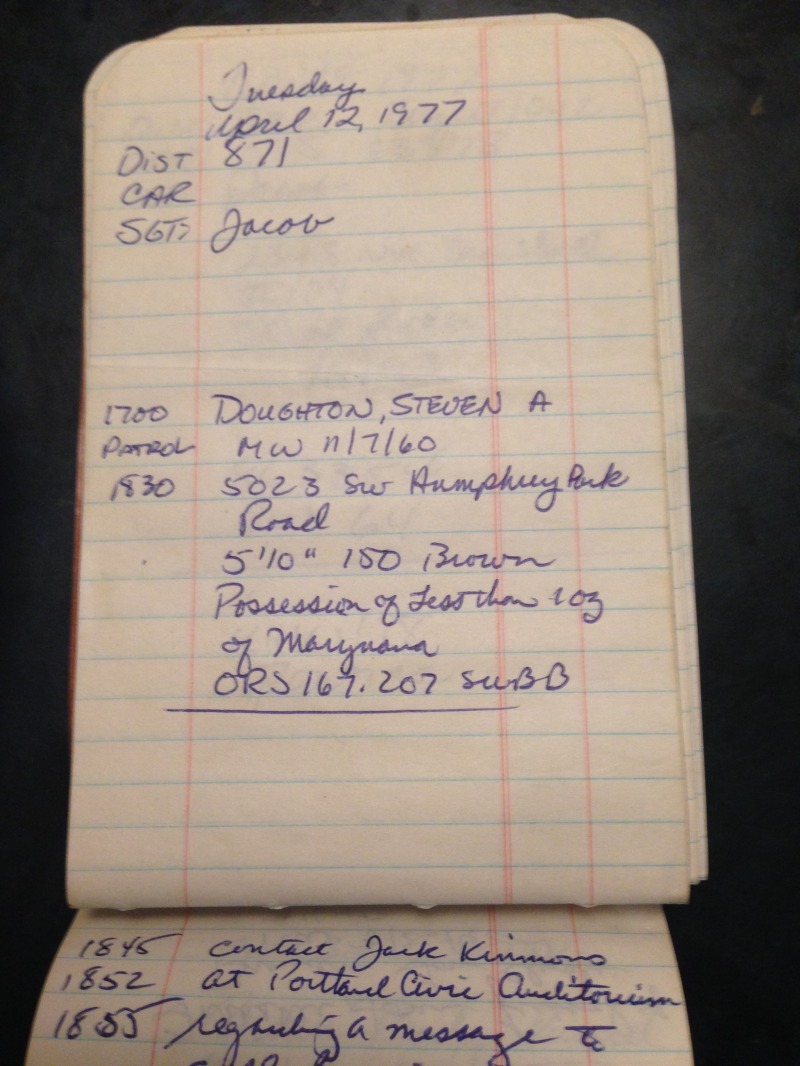 Tuesday
April 12, 1977
DIST 871
CAR
SGT: Jacob
1700 DOUGHTON, STEVEN A
PATROL MW 11/7/60
1830 5023 SW Humphrey Park
Road
5'10" 150 Brown
Possession of Less than 1 oz
of Marijuana
ORS 167.207 SUB B
1845 contact Jack Kimmons
1852 at Portland Civic Auditorium
1855 regarding a message to